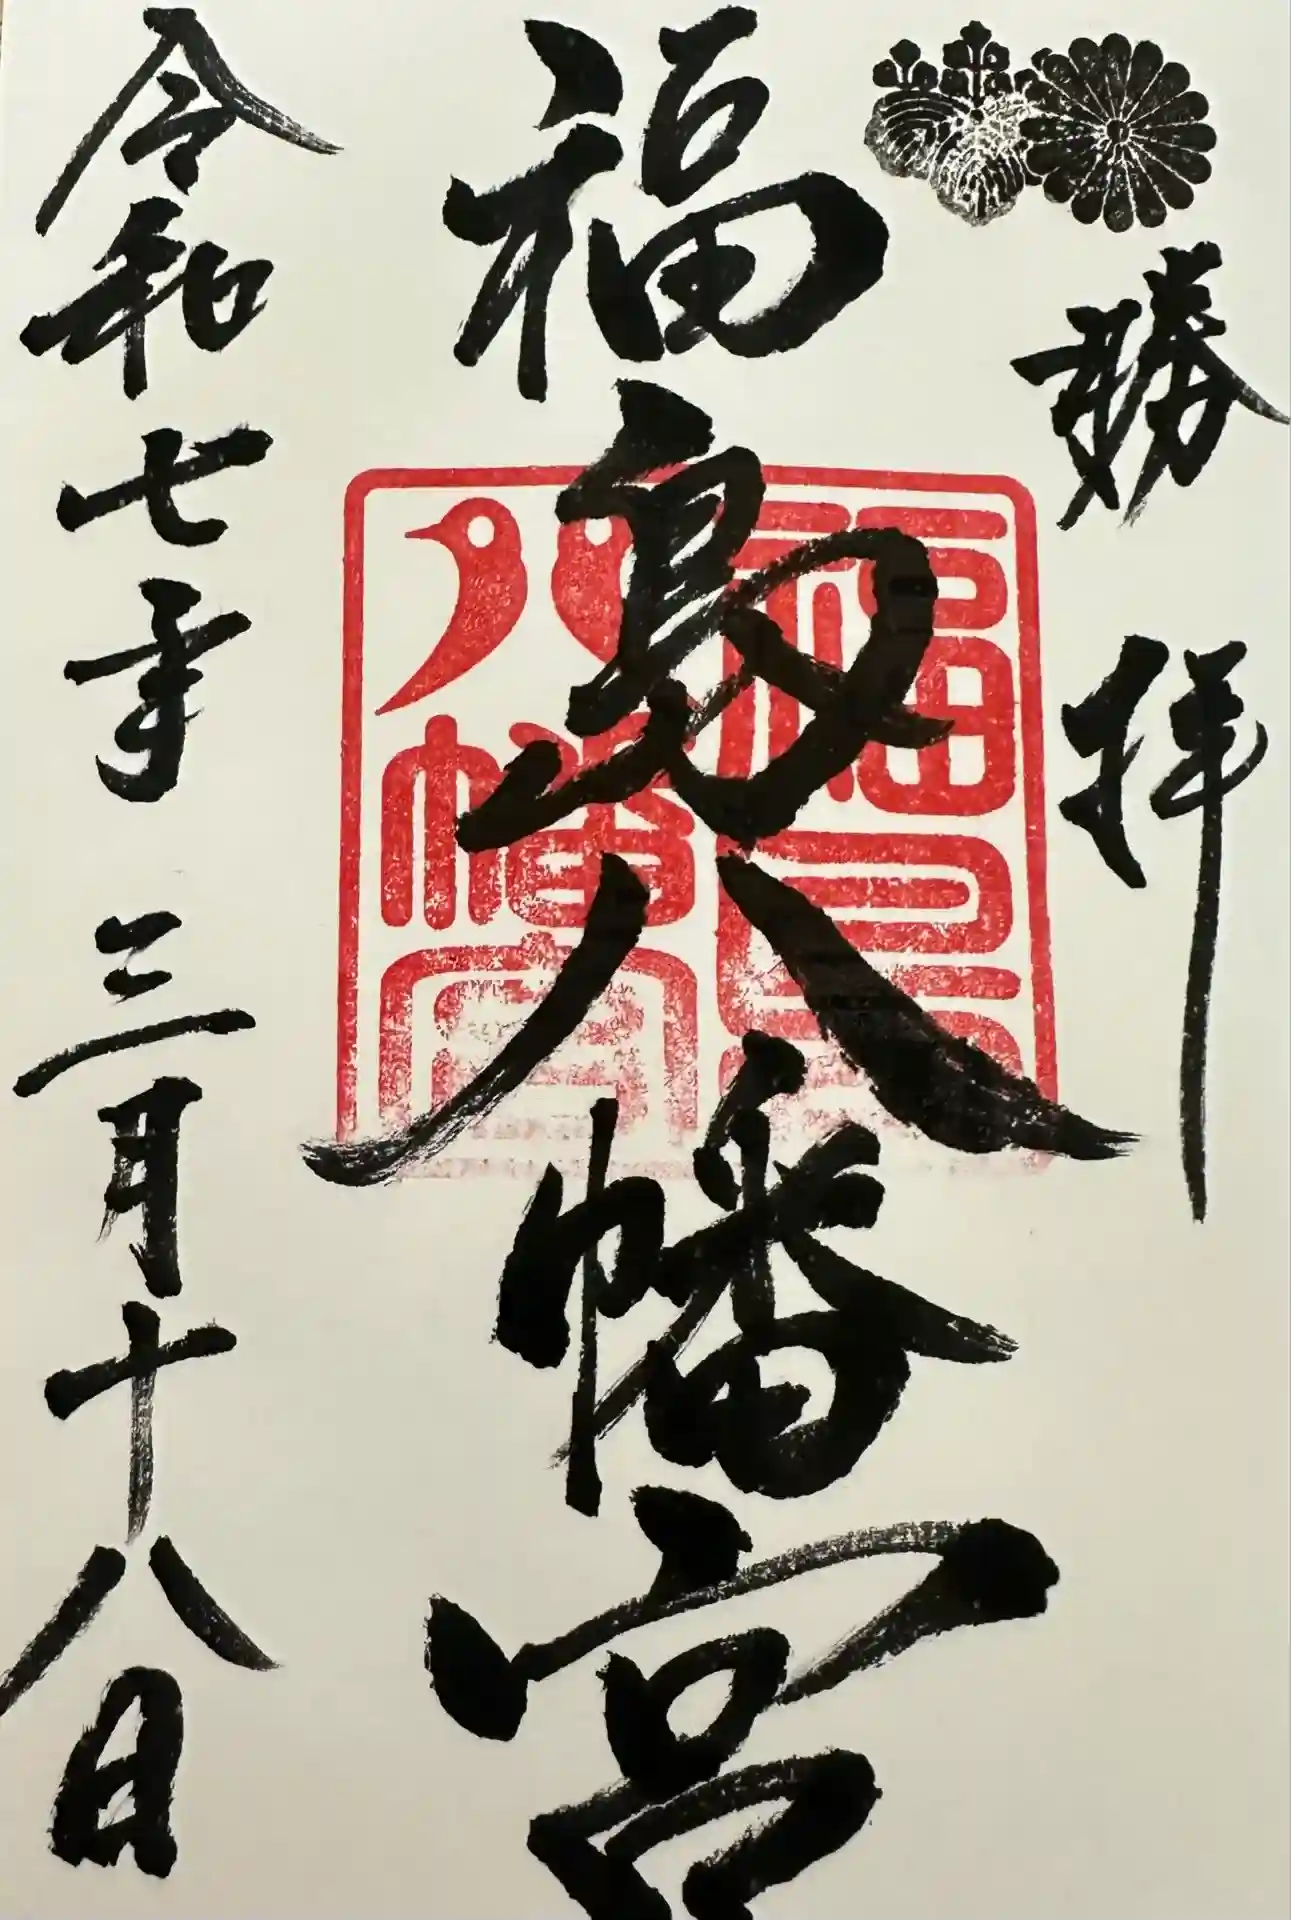 勝拝
福島八幡宮
福島
八幡宮
令和七年三月十八日